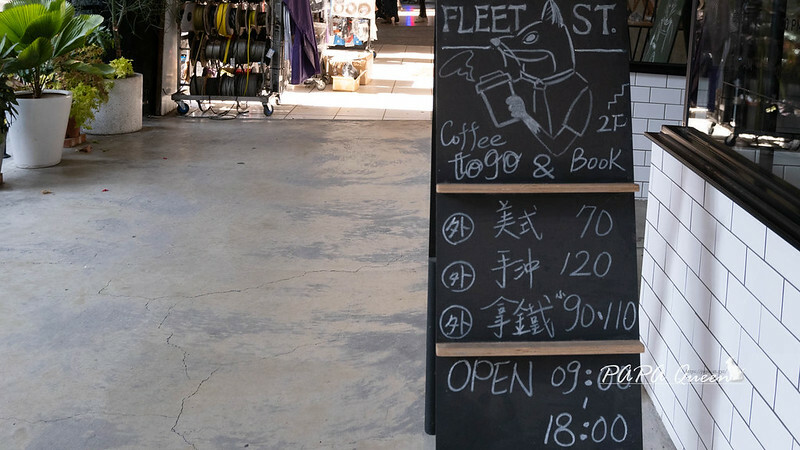 FLEET ST.
2F
Coffee
togo & Book
外 美式 70
外 手沖 120
外 拿鐵 小90、110
OPEN 09:00
18:00
PARA Queen